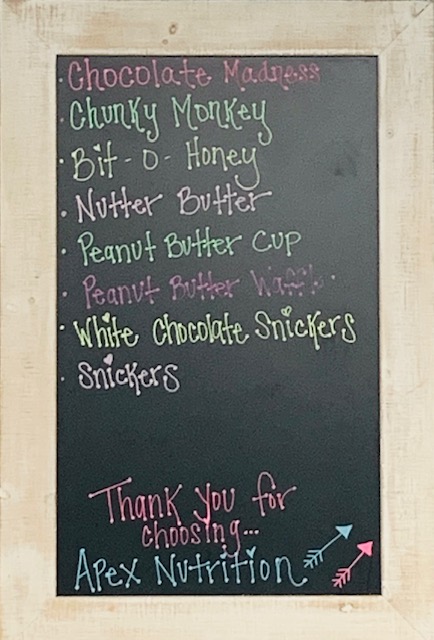 · Chocolate Madness
· Chunky Monkey
· Bit-O-Honey
· Nutter Butter
· Peanut Butter Cup
· Peanut Butter Waffle
· White Chocolate Snickers
· Snickers
Thank you for
choosing...
Apex Nutrition